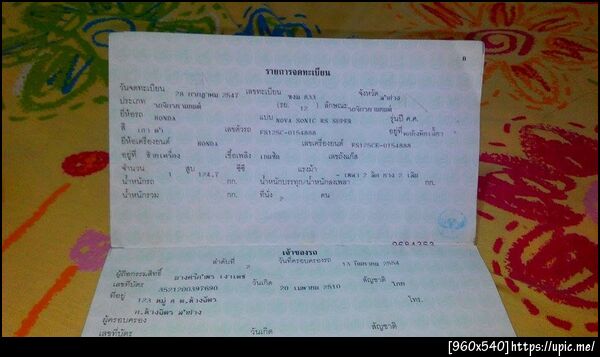 8
รายการจดทะเบียน
วันจดทะเบียน 28 กรกฎาคม 2547 เลขทะเบียน 833 จังหวัด ลำปาง
ประเภท รถจักรยานยนต์ (รย. 12 ) ลักษณะ รถจักรยานยนต์
ยี่ห้อรถ HONDA แบบ NOVA SONIC RS SUPER รุ่นปี ค.ศ.
สี เทา ดำ เลขตัวรถ FS125C-0154888 อยู่ที่
ยี่ห้อเครื่องยนต์ HONDA เลขเครื่องยนต์ FS125CE-0154888
อยู่ที่ ซ้ายเครื่อง เชื้อเพลิง เบนซิน เลขถังแก๊ส
จำนวน 1 สูบ 124.7 ซีซี แรงม้า - เพลา 2 ล้อ ยาง 2 เส้น
น้ำหนักรถ กก. น้ำหนักบรรทุก/น้ำหนักลงเพลา กก.
น้ำหนักรวม กก. ที่นั่ง 2 คน
เจ้าของรถ
ลำดับที่ 2 วันที่ครอบครองรถ 13 2554
ผู้ถือกรรมสิทธิ์
เลขที่บัตร 3521200397690 วันเกิด 20 เมษายน 2510 สัญชาติ ไทย
ที่อยู่ 123 หมู่ 6 ต.ห้างฉัตร โทร.
อ.ห้างฉัตร ลำปาง
ผู้ครอบครอง
เลขที่บัตร วันเกิด สัญชาติ
[960x540]https://upic.me/